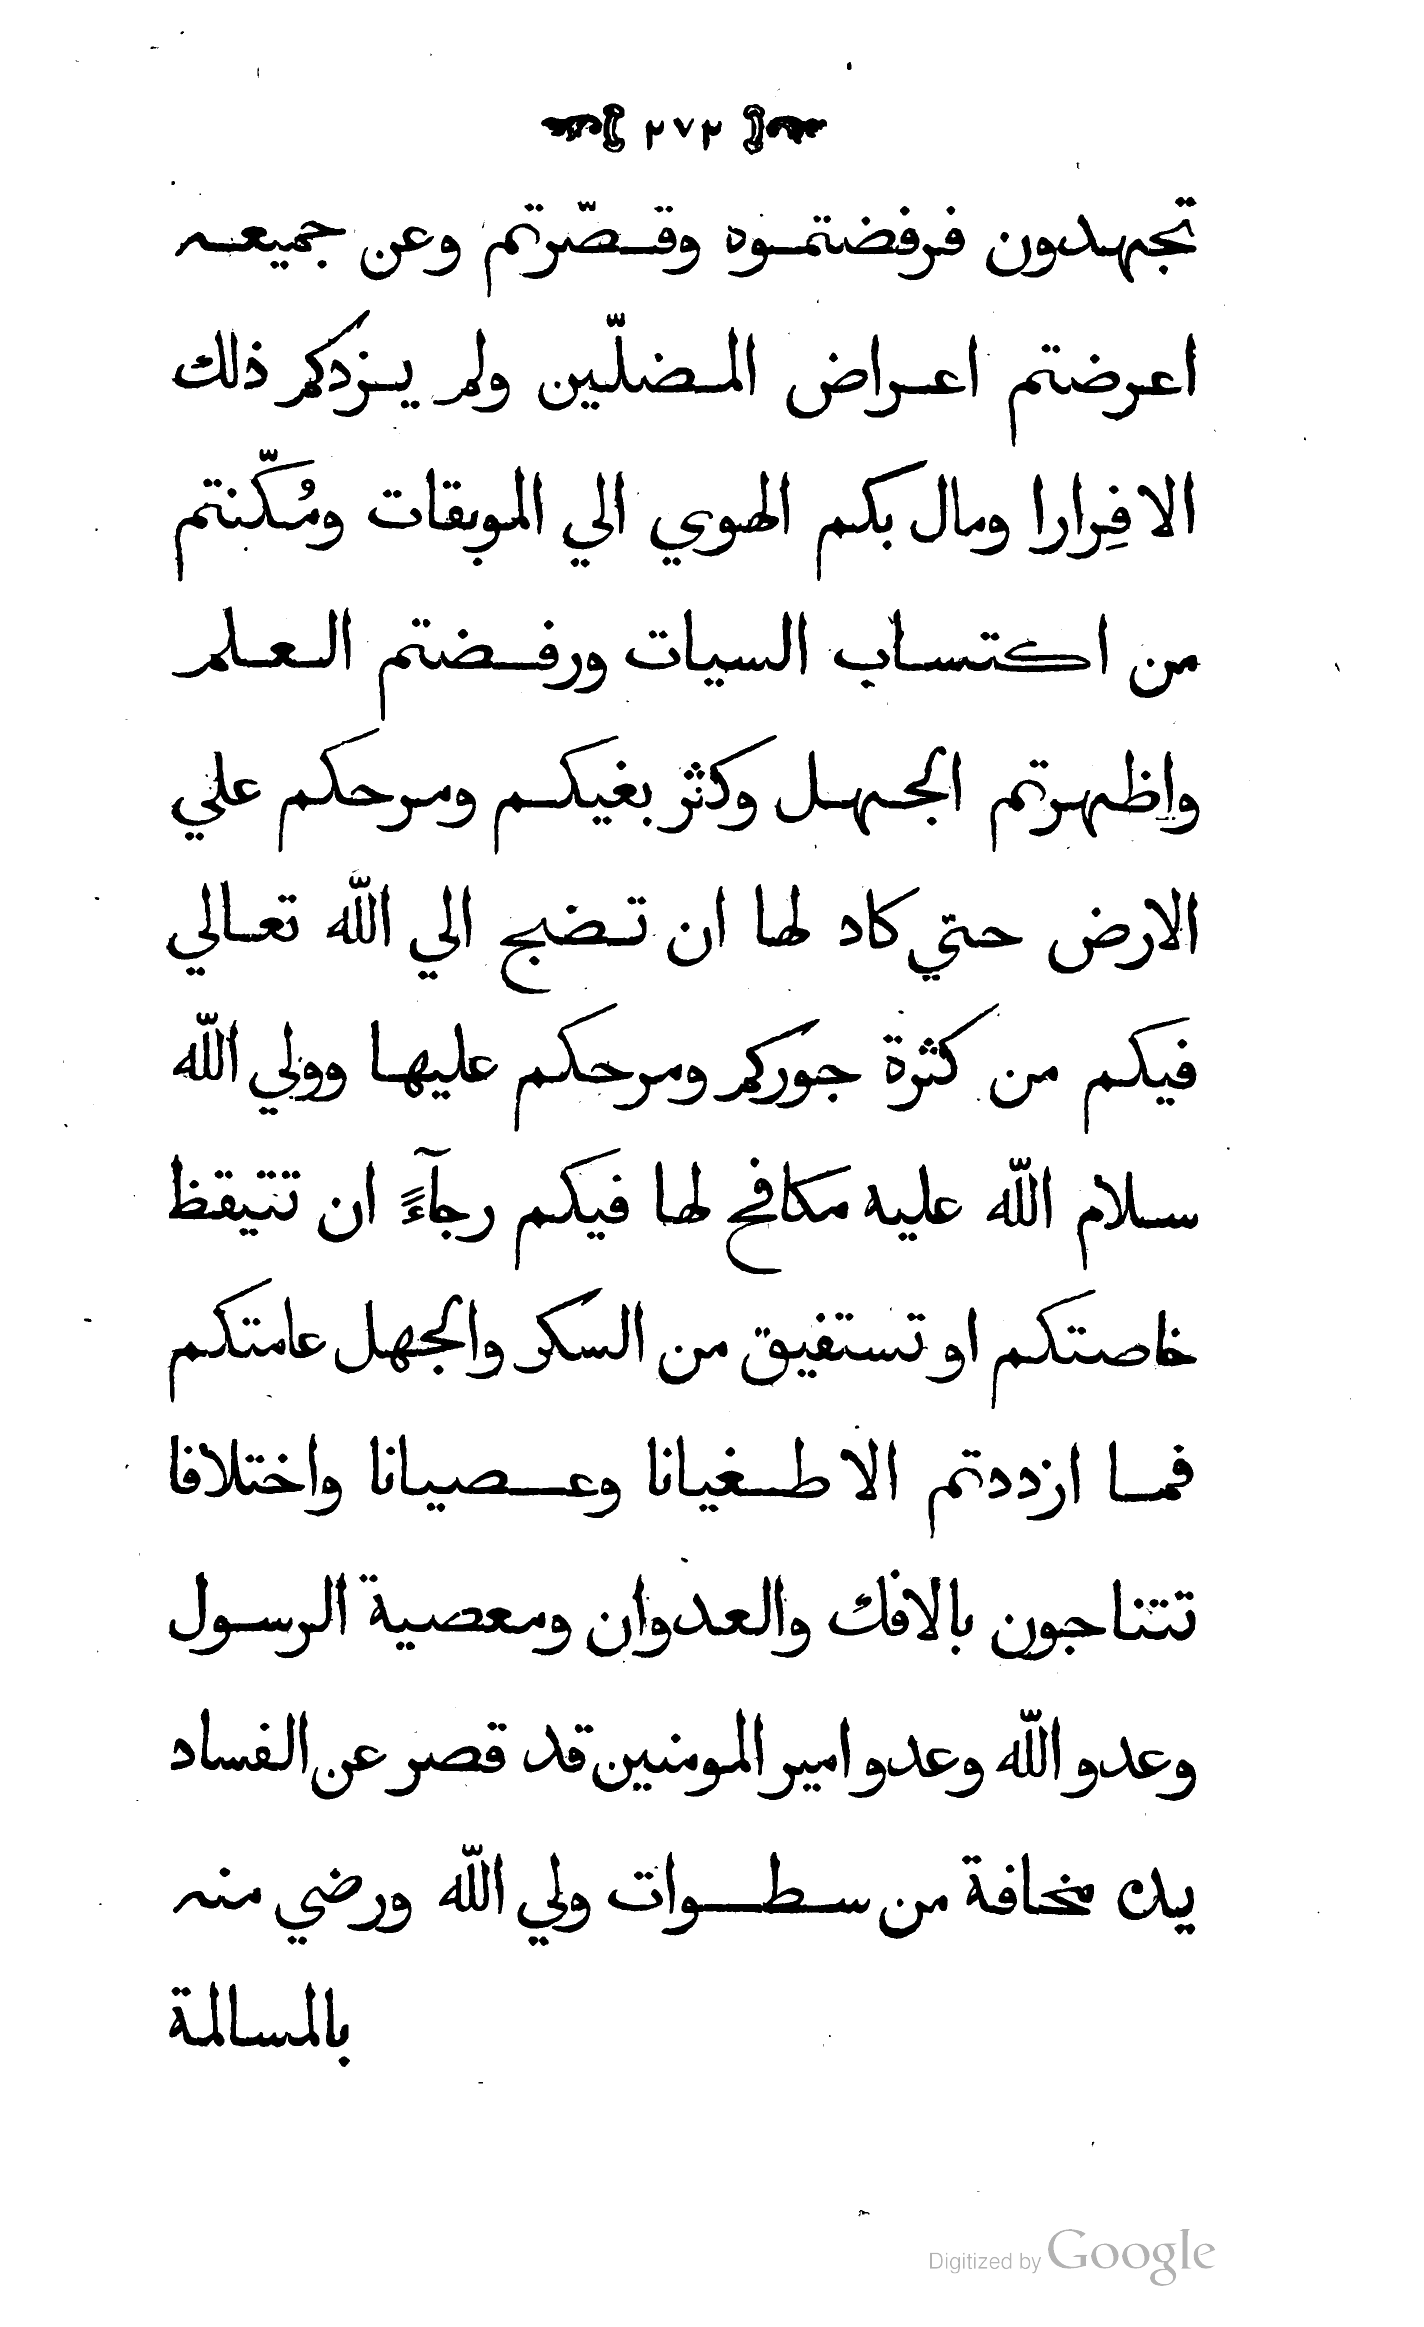 ٢٧٢
تجهدون فرفضتموه وقصّرتم وعن جميعه
اعرضتم اعراض المضلّين ولم يزدكم ذلك
الا فِرارا ومال بكم الهوي الي الموبقات ومُكّنتم
من اكتساب السيات ورفضتم العلم
واظهرتم الجهل وكثر بغيكم ومرحكم علي
الارض حتي كاد لها ان تضج الي الله تعالي
فيكم من كثرة جوركم ومرحكم عليها وولي الله
سلام الله عليه مكافح لها فيكم رجآءً ان تتيقظ
خاصتكم او تستفيق من السكر والجهل عامتكم
فما ازددتم الا طغيانا وعصيانا واختلافا
تتناجون بالافك والعدوان ومعصية الرسول
وعدو الله وعدو امير المومنين قد قصر عن الفساد
يده مخافة من سطوات ولي الله ورضي منه
بالمسالمة
Digitized by Google